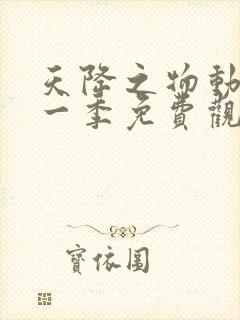 天降之物動
一季免費觀
寶依圓